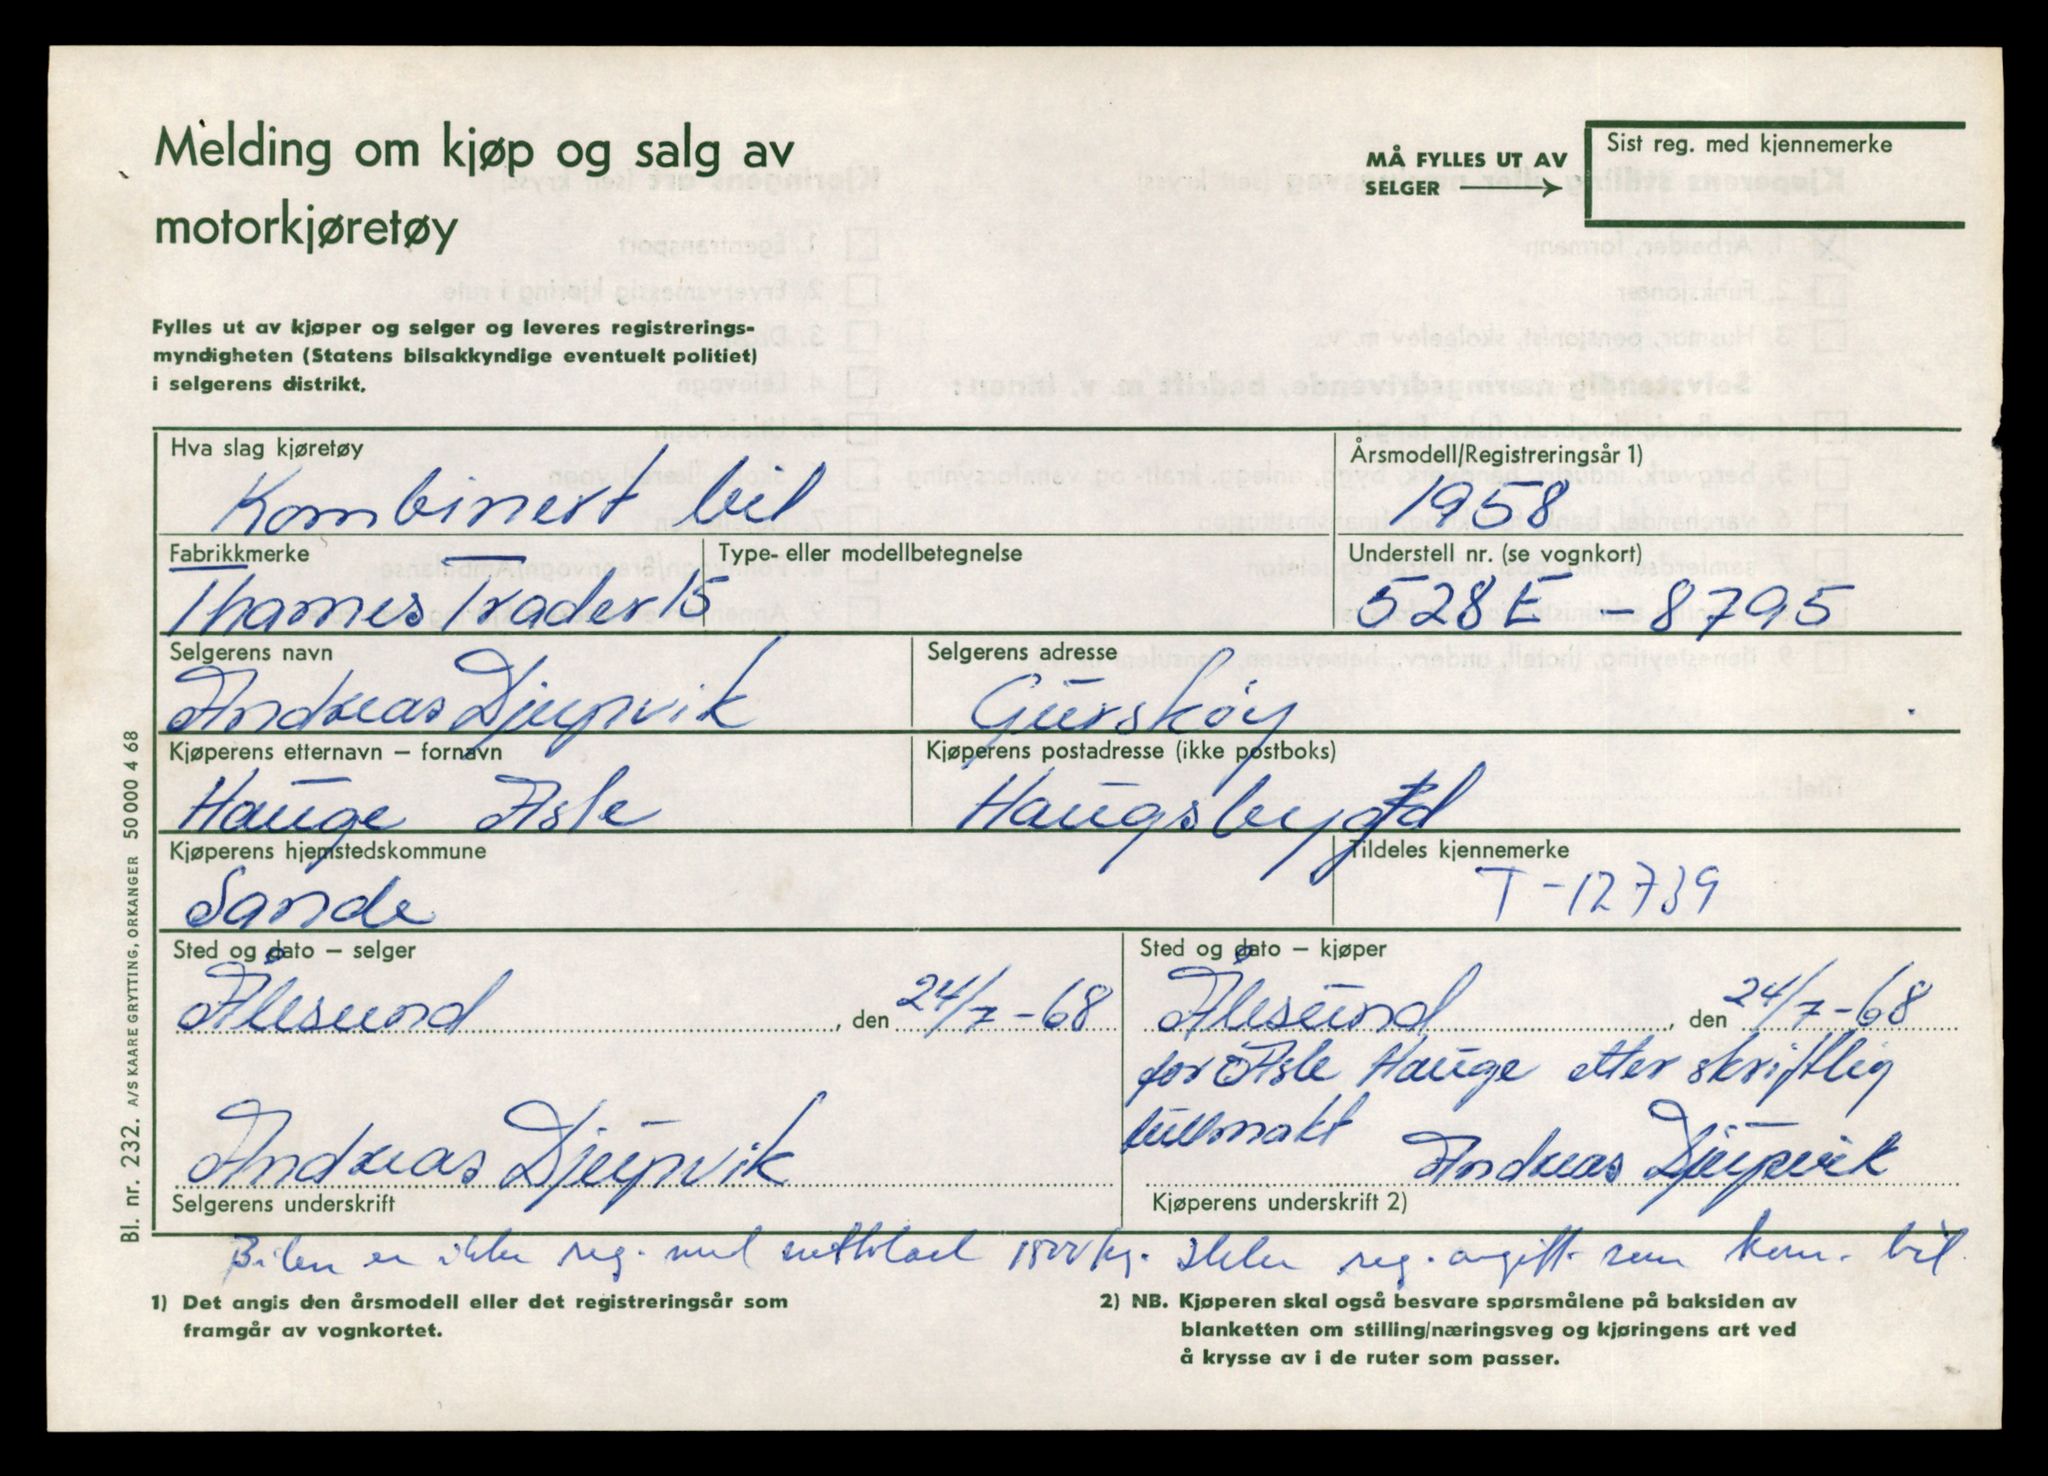 Melding om kjøp og salg av
motorkjøretøy
MÅ FYLLES UT AV
SELGER
Sist reg. med kjennemerke
Fylles ut av kjøper og selger og leveres registrerings-
myndigheten (Statens bilsakkyndige eventuelt politiet)
i selgerens distrikt.
Hva slag kjøretøy
Kombinert bil
Årsmodell/Registreringsår 1)
1958
Fabrikkmerke
Thames Trader 15
Type- eller modellbetegnelse
Understell nr. (se vognkort)
528E - 8795
Selgerens navn
Andreas Djupvik
Selgerens adresse
Gurskøy
Kjøperens etternavn – fornavn
Hauge Asle
Kjøperens postadresse (ikke postboks)
Haugsbygd
Kjøperens hjemstedskommune
Sande
Tildeles kjennemerke
T-12739
Sted og dato – selger
Ålesund, den 24/7-68
Sted og dato – kjøper
Ålesund, den 24/7-68
for Asle Hauge etter skriftlig
fullmakt Andreas Djupvik
Andreas Djupvik
Selgerens underskrift
Kjøperens underskrift 2)
Bilen er ikke reg. med nettolast 1500 kg. Ikke reg. avgift som kom. bil.
1) Det angis den årsmodell eller det registreringsår som
framgår av vognkortet.
2) NB. Kjøperen skal også besvare spørsmålene på baksiden av
blanketten om stilling/næringsveg og kjøringens art ved
å krysse av i de ruter som passer.
Bl. nr. 232. A/S KAARE GRYTTING, ORKANGER 50 000 4 68